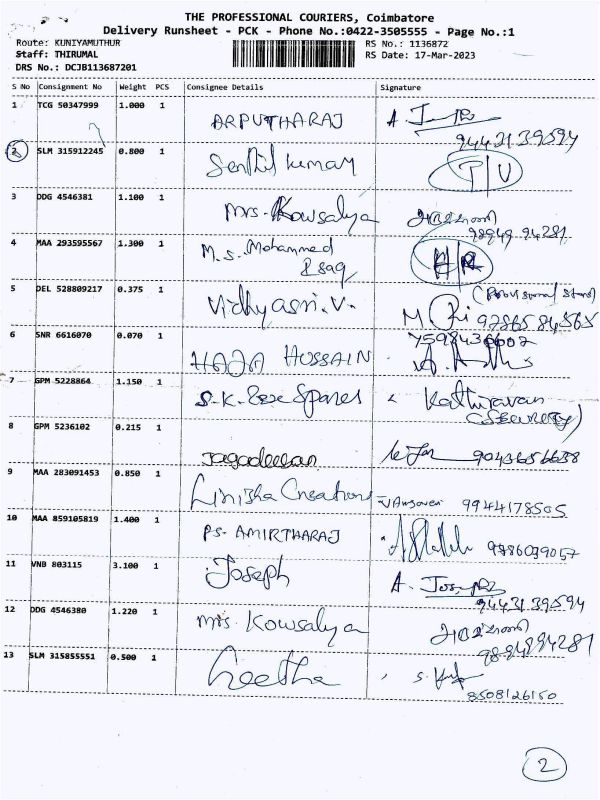 THE PROFESSIONAL COURIERS, Coimbatore
Delivery Runsheet - PCK - Phone No.:0422-3505555 - Page No.:1
Route: KUNIYAMUTHUR RS No.: 1136872
Staff: THIRUMAL RS Date: 17-Mar-2023
DRS No.: DCJB113687201
S No Consignment No Weight PCS Consignee Details Signature
1 TCG 50347999 1.000 1 ARPUTHARAJ A.
9443139594
2 SLM 315912245 0.800 1 Senthil kumar T/V
3 DDG 4546381 1.100 1 Mrs. Kowsalya
98949 94281
4 MAA 293595567 1.300 1 M.S. Mohammed
5 DEL 528809217 0.375 1 Vidhyasri.V.
6 SNR 6616070 0.070 1 HAJA HUSSAIN
7598436002
7 GPM 5228864 1.150 1 S.K. Spares Kathiravan
(Security)
8 GPM 5236102 0.215 1 Jagadeesan
9 MAA 283091453 0.850 1 Linisha Creations 9944178505
10 MAA 859105819 1.400 1 PS. AMIRTHARAJ
11 VNB 803115 3.100 1 Joseph A. Joseph
9443139594
12 DDG 4546380 1.220 1 Mrs. Kowsalya
9894994281
13 SLM 315855551 0.500 1 Geetha
8508126150
2